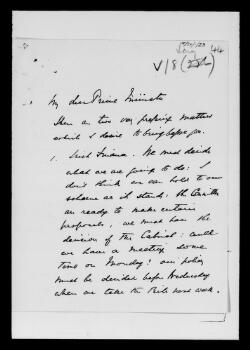 44
V/8
My dear Prime Minister
There are two very pressing matters
which I desire to bring before you.
1. Irish Finance. We must decide
what we are going to do: I
don't think we can hold to our
scheme as it stands: the
are ready to make certain
proposals, we must have the
decision of the Cabinet: could
we have a meeting some
time on Monday? our policy
must be decided before Wednesday
when we take the Bill next week.